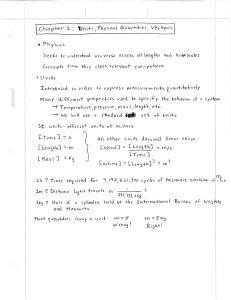 Chapter 1: Units, Physical Quantities, Vectors
• Physics
Seeks to understand universe across all lengths and timescales
Concepts from this class relevant everywhere
• Units
Introduced in order to express measurements quantitatively
Many different properties used to specify the behavior of a system
→ Temperature, pressure, mass, length, etc.
→ We will use a standard set of units
SI units - official units of science
[Time] = s
[Length] = m
[Mass] = kg
All other units derived from these
[Speed] = [Length] / [Time] = m/s
[Volume] = [Length]³ = m³
1s ≡ Time required for 9,192,631,770 cycles of microwave emission of
1m ≡ Distance light travels in 1 / 299,792,458 s
1kg ≡ Mass of a cylinder held at the International Bureau of Weights
and Measures
Most quantities carry a unit: m = 5 m = 5 kg
Wrong! Right!